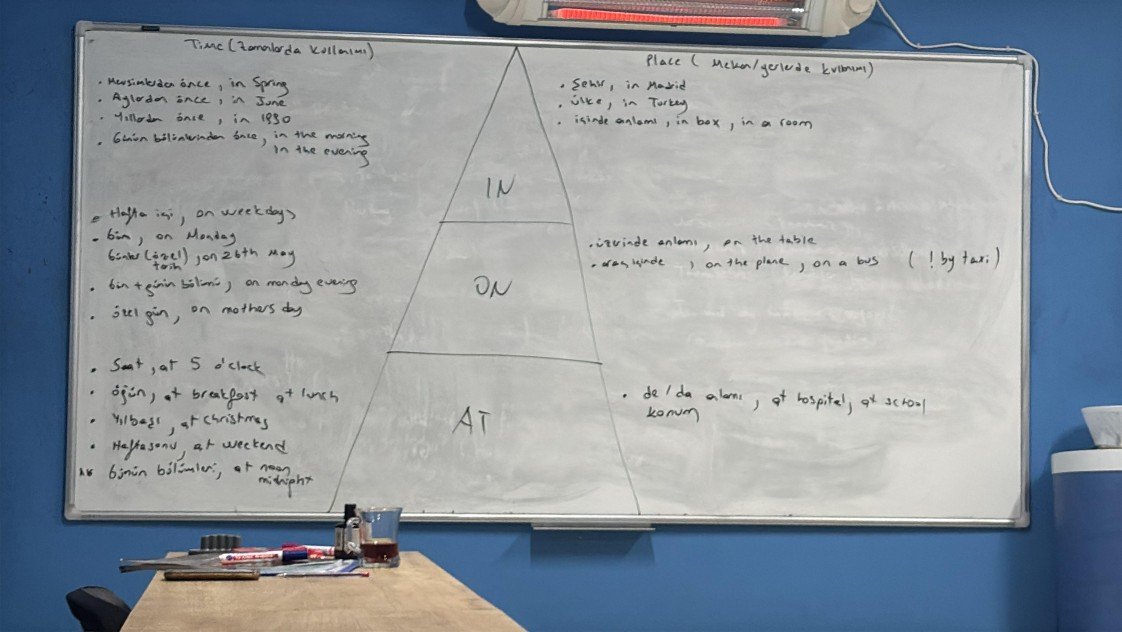 Time (Zamanlarda kullanımı)
. Mevsimlerden önce, in Spring
. Aylardan önce, in June
. Yıllardan önce, in 1990
. Günün bölümlerinden önce, in the morning
in the evening
. Hafta içi, on weekdays
. Gün, on Monday
Günler (özel), on 26th May
tarih
. Gün + günün bölümü, on monday evening
. özel gün, on mothers day
. Saat, at 5 o'clock
. öğün, at breakfast at lunch
. Yılbaşı, at christmas
. Haftasonu, at weekend
Günün bölümleri, at noon
midnight
IN
ON
AT
Place ( Mekan/yerlerde kullanımı)
. Şehir, in Madrid
. ülke, in Turkey
. içinde anlamı, in box, in a room
. üzerinde anlamı, on the table
. araç içinde, on the plane, on a bus ( ! by taxi)
. de/da alamı, at hospital, at school
konum